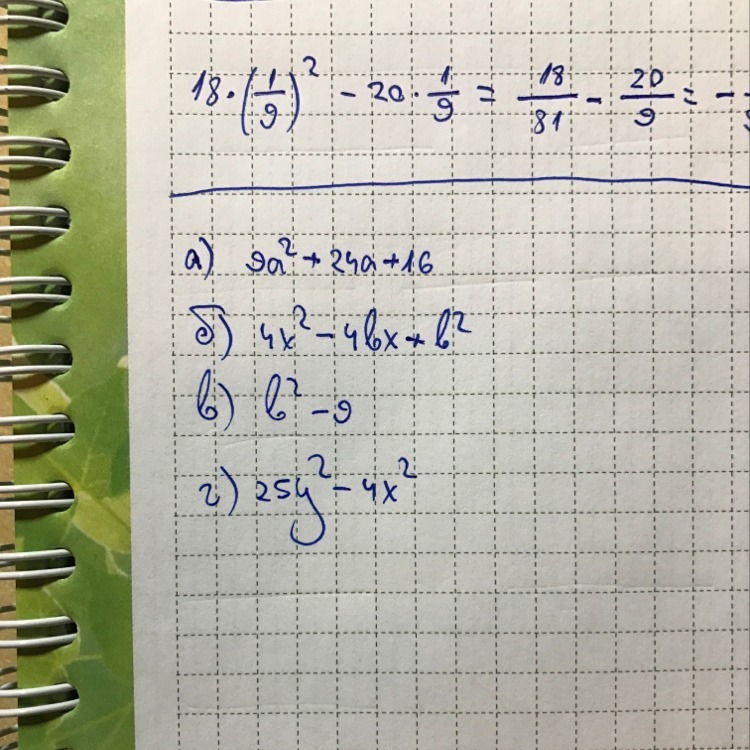 18·(1/9)² − 20·1/9 = 18/81 − 20/9 = −
а) 9a² + 24a + 16
б) 4x² − 4bx + b²
в) b² − 9
г) 25y² − 4x²